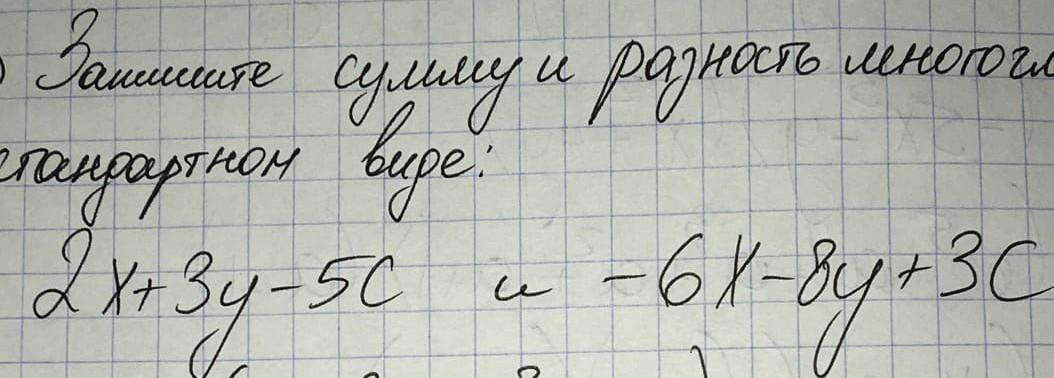 ) Запишите сумму и разность многогл
стандартном виде:
2x+3y-5c и -6x-8y+3c